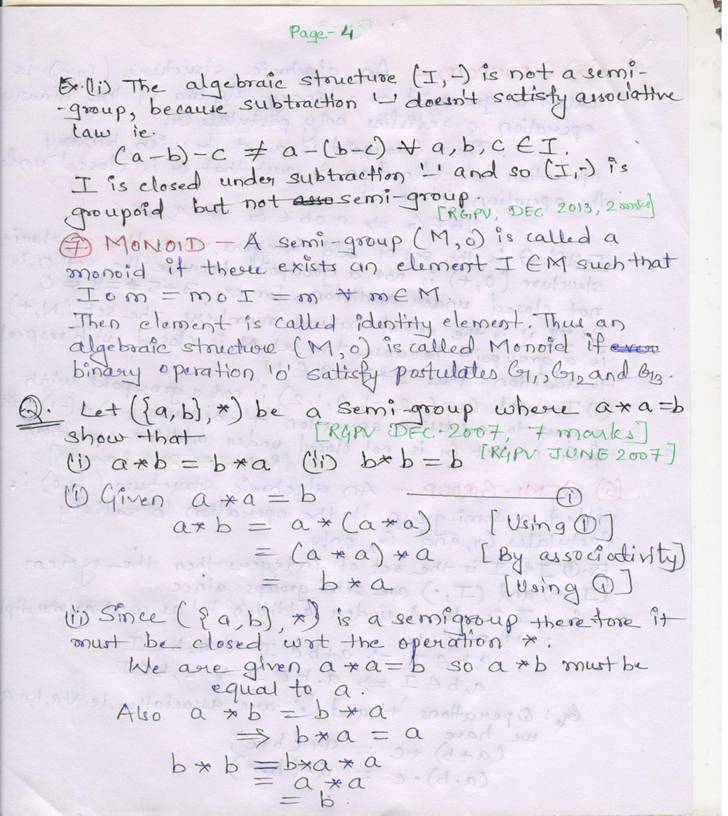 Page-4
Ex.(ii) The algebraic structure (I,-) is not a semi-
-group, because subtraction '-' doesn't satisfy associative
law ie.
(a-b)-c ≠ a-(b-c) ∀ a,b,c ∈ I.
I is closed under subtraction '-' and so (I,-) is
groupoid but not semi-group
[RGPV, DEC 2013, 2 marks]
⑦ MONOID - A semi-group (M,o) is called a
monoid if there exists an element I ∈ M such that
I o m = m o I = m ∀ m ∈ M
Then element is called identity element. Thus an
algebraic structure (M,o) is called Monoid if
binary operation 'o' satisfy postulates G1, G2 and G3.
Q. Let ({a,b},*) be a semi-group where a*a=b
show that
[RGPV DEC-2007, 7 marks]
(i) a*b = b*a (ii) b*b = b [RGPV JUNE 2007]
(i) Given a*a = b ①
a*b = a*(a*a) [Using ①]
= (a*a)*a [By associativity]
= b*a [Using ①]
(ii) Since ({a,b},*) is a semigroup therefore it
must be closed wrt the operation *.
We are given a*a=b so a*b must be
equal to a.
Also a*b = b*a
⇒ b*a = a
b*b = b*a*a
= a*a
= b.